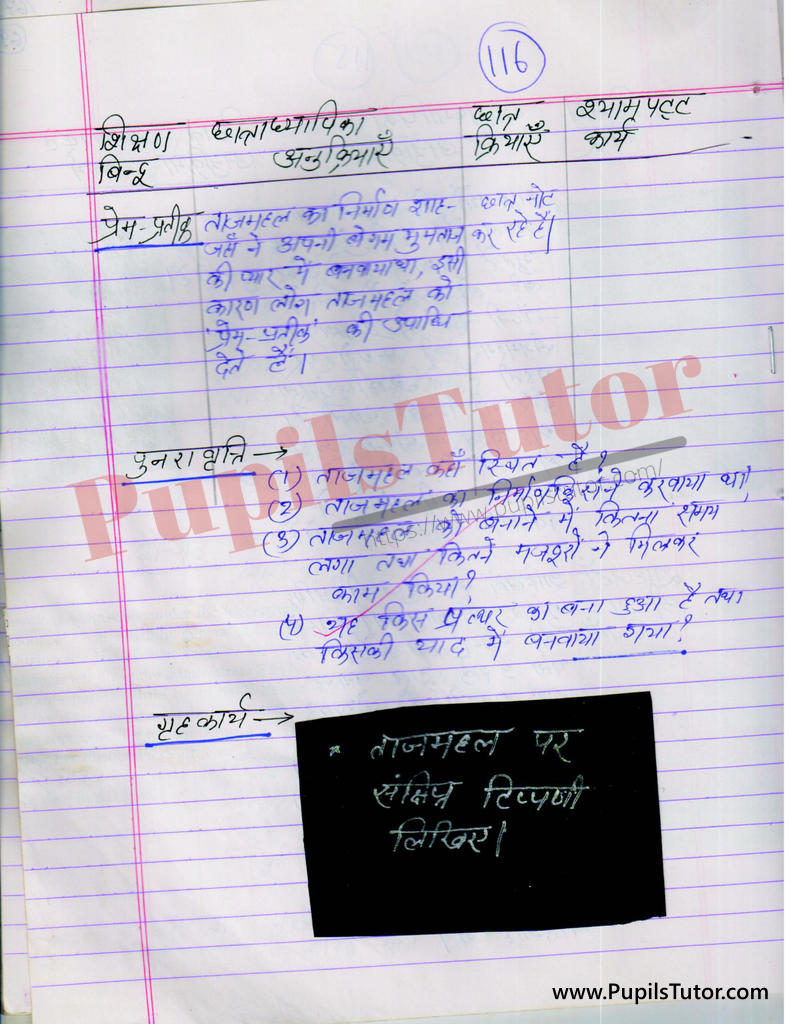 116
शिक्षण बिन्दु
छात्राध्यापिका अनुक्रियाएँ
छात्र क्रियाएँ
श्यामपट्ट कार्य
प्रेम-प्रतीक
ताजमहल का निर्माण शाह-
जहाँ ने अपनी बेगम मुमताज
की प्यार में बनवाया था, इसी
कारण लोग ताजमहल को
'प्रेम-प्रतीक' की उपाधि
देते हैं।
छात्र नोट
कर रहे हैं।
पुनरावृत्ति →
(1) ताजमहल कहाँ स्थित है?
(2) ताजमहल का निर्माण किसने करवाया था?
(3) ताजमहल को बनाने में कितना समय
लगा तथा कितने मजदूरों ने मिलकर
काम किया?
(4) यह किस पत्थर का बना हुआ है तथा
किसकी याद में बनवाया गया?
गृहकार्य →
* ताजमहल पर
संक्षिप्त टिप्पणी
लिखिए।
PupilsTutor
https://www.pupilstutor.com/
www.PupilsTutor.com